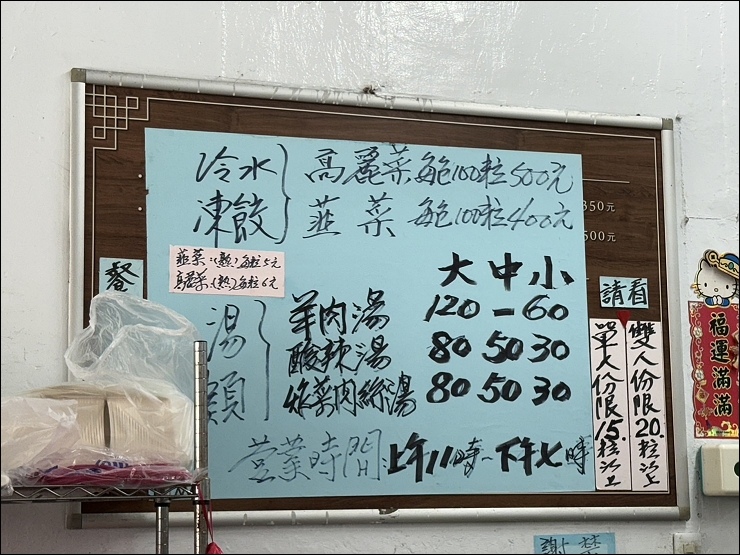 冷水
凍餃
高麗菜 每包100粒500元
韭菜 每包100粒400元
350元
500元
韭菜:(熟)每粒5元
高麗菜:(熟)每粒6元
餐
請看
大 中 小
湯類
羊肉湯 120 - 60
酸辣湯 80 50 30
榨菜肉絲湯 80 50 30
營業時間:上午11時~下午七時
單人份限15粒以上
雙人份限20粒以上
福運滿滿